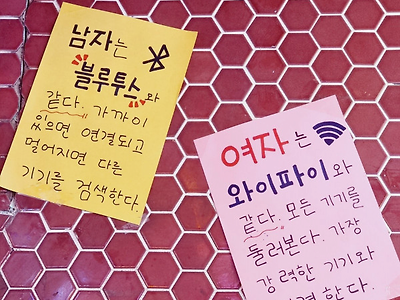 남자는
블루투스와
같다. 가까이
있으면 연결되고
멀어지면 다른
기기를 검색한다.
여자는
와이파이와
같다. 모든 기기를
둘러본다. 가장
강력한 기기와
한다.